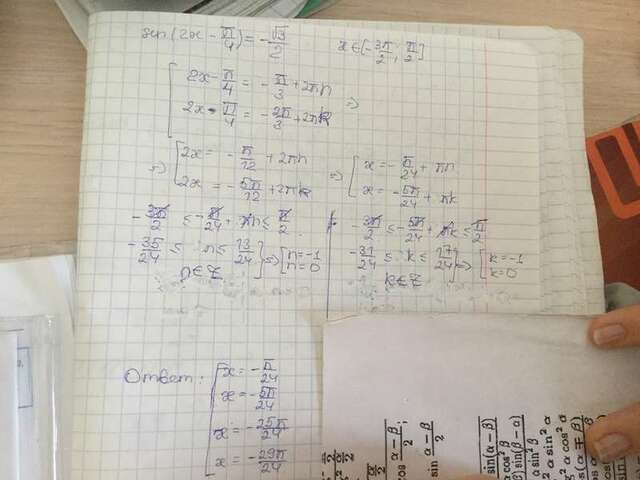 sin(2x - π/4) = -√3/2 x∈[-3π/2; π/2]
[2x - π/4 = -π/3 + 2πn
2x - π/4 = -2π/3 + 2πk ⇒
⇒ [2x = -π/12 + 2πn ⇒ [x = -π/24 + πn
2x = -5π/12 + 2πk x = -5π/24 + πk
-3π/2 ≤ -π/24 + πn ≤ π/2
-35/24 ≤ n ≤ 13/24 ⇒ [n = -1
n = 0
n∈Z
-3π/2 ≤ -5π/24 + πk ≤ π/2
-31/24 ≤ k ≤ 17/24 ⇒ [k = -1
k = 0
k∈Z
Ответ: [x = -π/24
x = -5π/24
x = -25π/24
x = -29π/24
cos (α - β)/2;
sin (α - β)/2
sin(α - β)
sin(β - α)